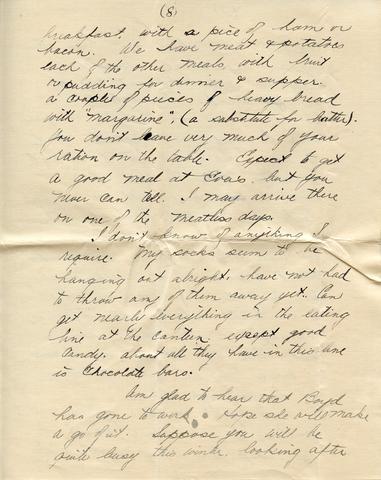 (8)
breakfast, with a piece of ham or
bacon. We have meat & potatoes
each of the other meals with fruit
or pudding for dinner & supper.
a couple of pieces of heavy bread
with "margarine" (a substitute for butter).
You don't leave very much of your
ration on the table. Expect to get
a good meal at Eva's, but you
never can tell. I may arrive there
on one of the meatless days.
I don't know of anything I
require. My socks seem to be
hanging out alright, have not had
to throw any of them away yet. Can
get nearly everything in the eating
line at the canteen except good
candy. about all they have in this line
is Chocolate bars.
Am glad to hear that Boyd
has gone to work. Hope she will make
a go of it. Suppose you will be
quite busy this winter looking after